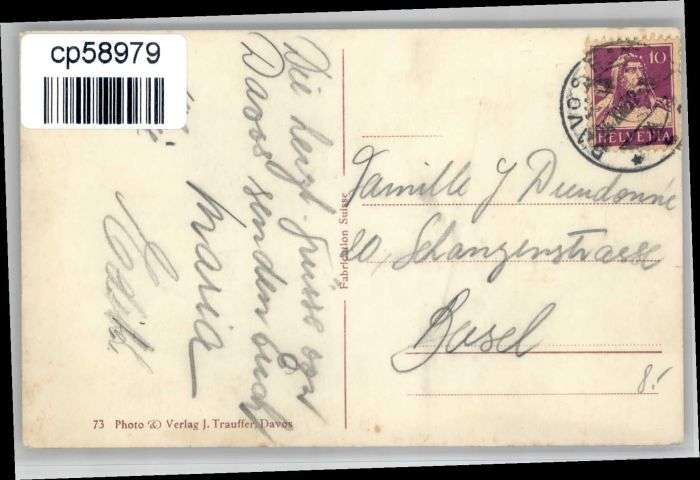 cp58979
Die herzl. Grüsse von
Davos senden Euch
Maria
10
HELVETIA
DAVOS
Famille J Dieudonné
20, Schanzenstrasse
Basel
8.-
Fabrication Suisse
73 Photo & Verlag J. Trauffer, Davos